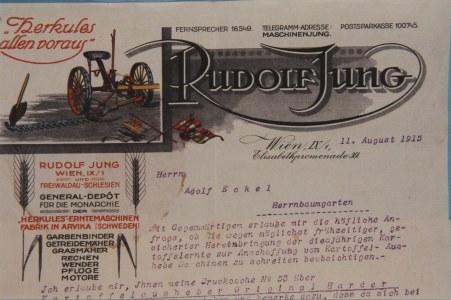 "Herkules
allen voraus"
FERNSPRECHER 16549.
TELEGRAMM-ADRESSE:
MASCHINENJUNG.
POSTSPARKASSE 100745.
RUDOLF JUNG
Wien, IX/1,
Elisabethpromenade
11. August 1915
RUDOLF JUNG
WIEN, IX/1
UND
FREIWALDAU-SCHLESIEN
GENERAL-DEPÔT
FÜR DIE MONARCHIE
DER
"HERKULES"-ERNTEMASCHINEN
FABRIK IN ARVIKA (SCHWEDEN)
GARBENBINDER
GETREIDEMÄHER
GRASMÄHER
RECHEN
WENDER
PFLÜGE
MOTORE
Herrn
Adolf Eckel
Herrnbaumgarten
Mit Gegenwärtigen erlaube mir die höfliche An-
frage, ob Sie wegen möglichst frühzeitiger, ge-
sicherter Hereinbringung der diesjährigen Kar-
toffelernte zur Anschaffung von Kartoffel-Aus-
hebe Maschinen zu schreiten beabsichtigen.
Ich erlaube mir, Ihnen meine Drucksache No 55 über
Kartoffelausheber Original Harder
bemerke dazu, dass da sich bei